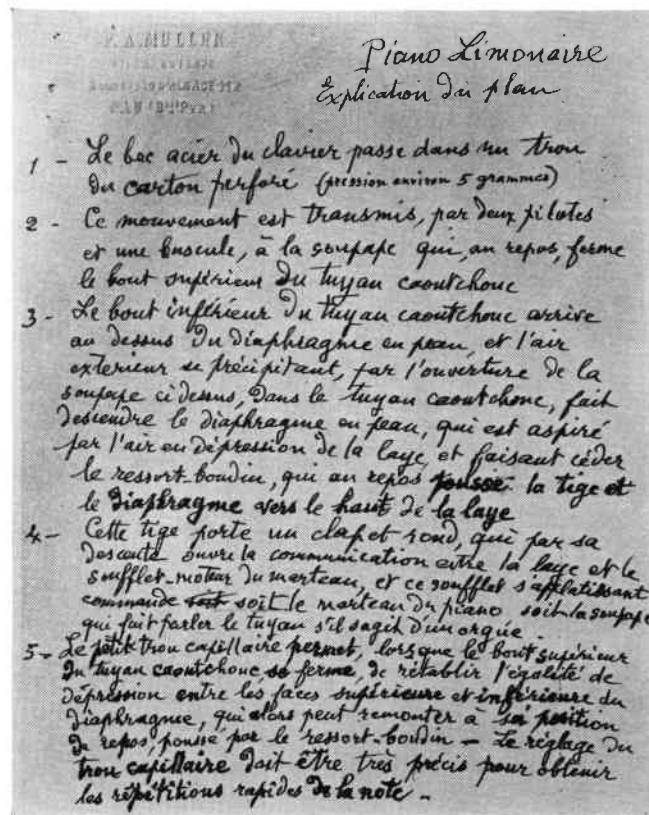 F. A. MULLER
Piano Limonaire
Explication du plan
1 - Le bec acier du clavier passe dans un trou
du carton perforé (pression environ 5 grammes)
2 - Ce mouvement est transmis, par deux pilotes
et une bascule, à la soupape qui, au repos, ferme
le bout supérieur du tuyau caoutchouc
3 - Le bout inférieur du tuyau caoutchouc arrive
au dessus du diaphragme en peau, et l'air
exterieur se précipitant, par l'ouverture de la
soupape ci dessus, dans le tuyau caoutchouc, fait
descendre le diaphragme en peau, qui est aspiré
par l'air en dépression de la laye, et faisant céder
le ressort-boudin, qui au repos pousse la tige et
le diaphragme vers le haut de la laye
4 - Cette tige porte un clapet rond, qui par sa
descente ouvre la communication entre la laye et le
soufflet-moteur du marteau, et ce soufflet s'applatissant
commande soit soit le marteau du piano soit la soupape
qui fait parler le tuyau s'il sagit d'un orgue.
5 - Le petit trou capillaire permet, lorsque le bout supérieur
du tuyau caoutchouc, se ferme, de rétablir l'égalité de
dépression entre les faces supérieure et inférieure du
diaphragme, qui alors peut remonter à sa position
de repos, poussé par le ressort-boudin - Le réglage du
trou capillaire doit être très précis pour obtenir
les répétitions rapides de la note -